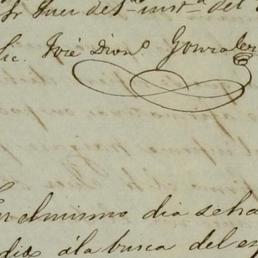 Sr Juez de 1ª inst.ª del
Lic. José Dion.º Gonzalez
En el mismo dia se ha
dió á la busca del es